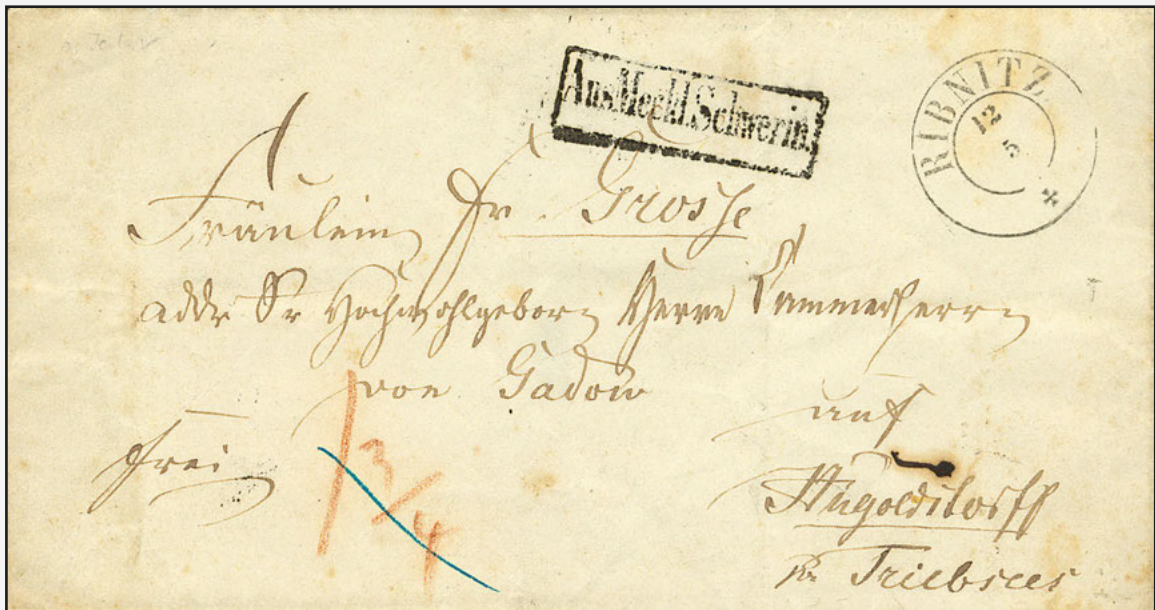 Aus Meckl. Schwerin.
RIBNITZ
12
5
Fräulein Fr. Grosse
addr Sr Hochwohlgeborn Herrn Kammerherrn
von Gadow
auf
frei
1 3/4
Hugoldsdorff
pr Triebsees